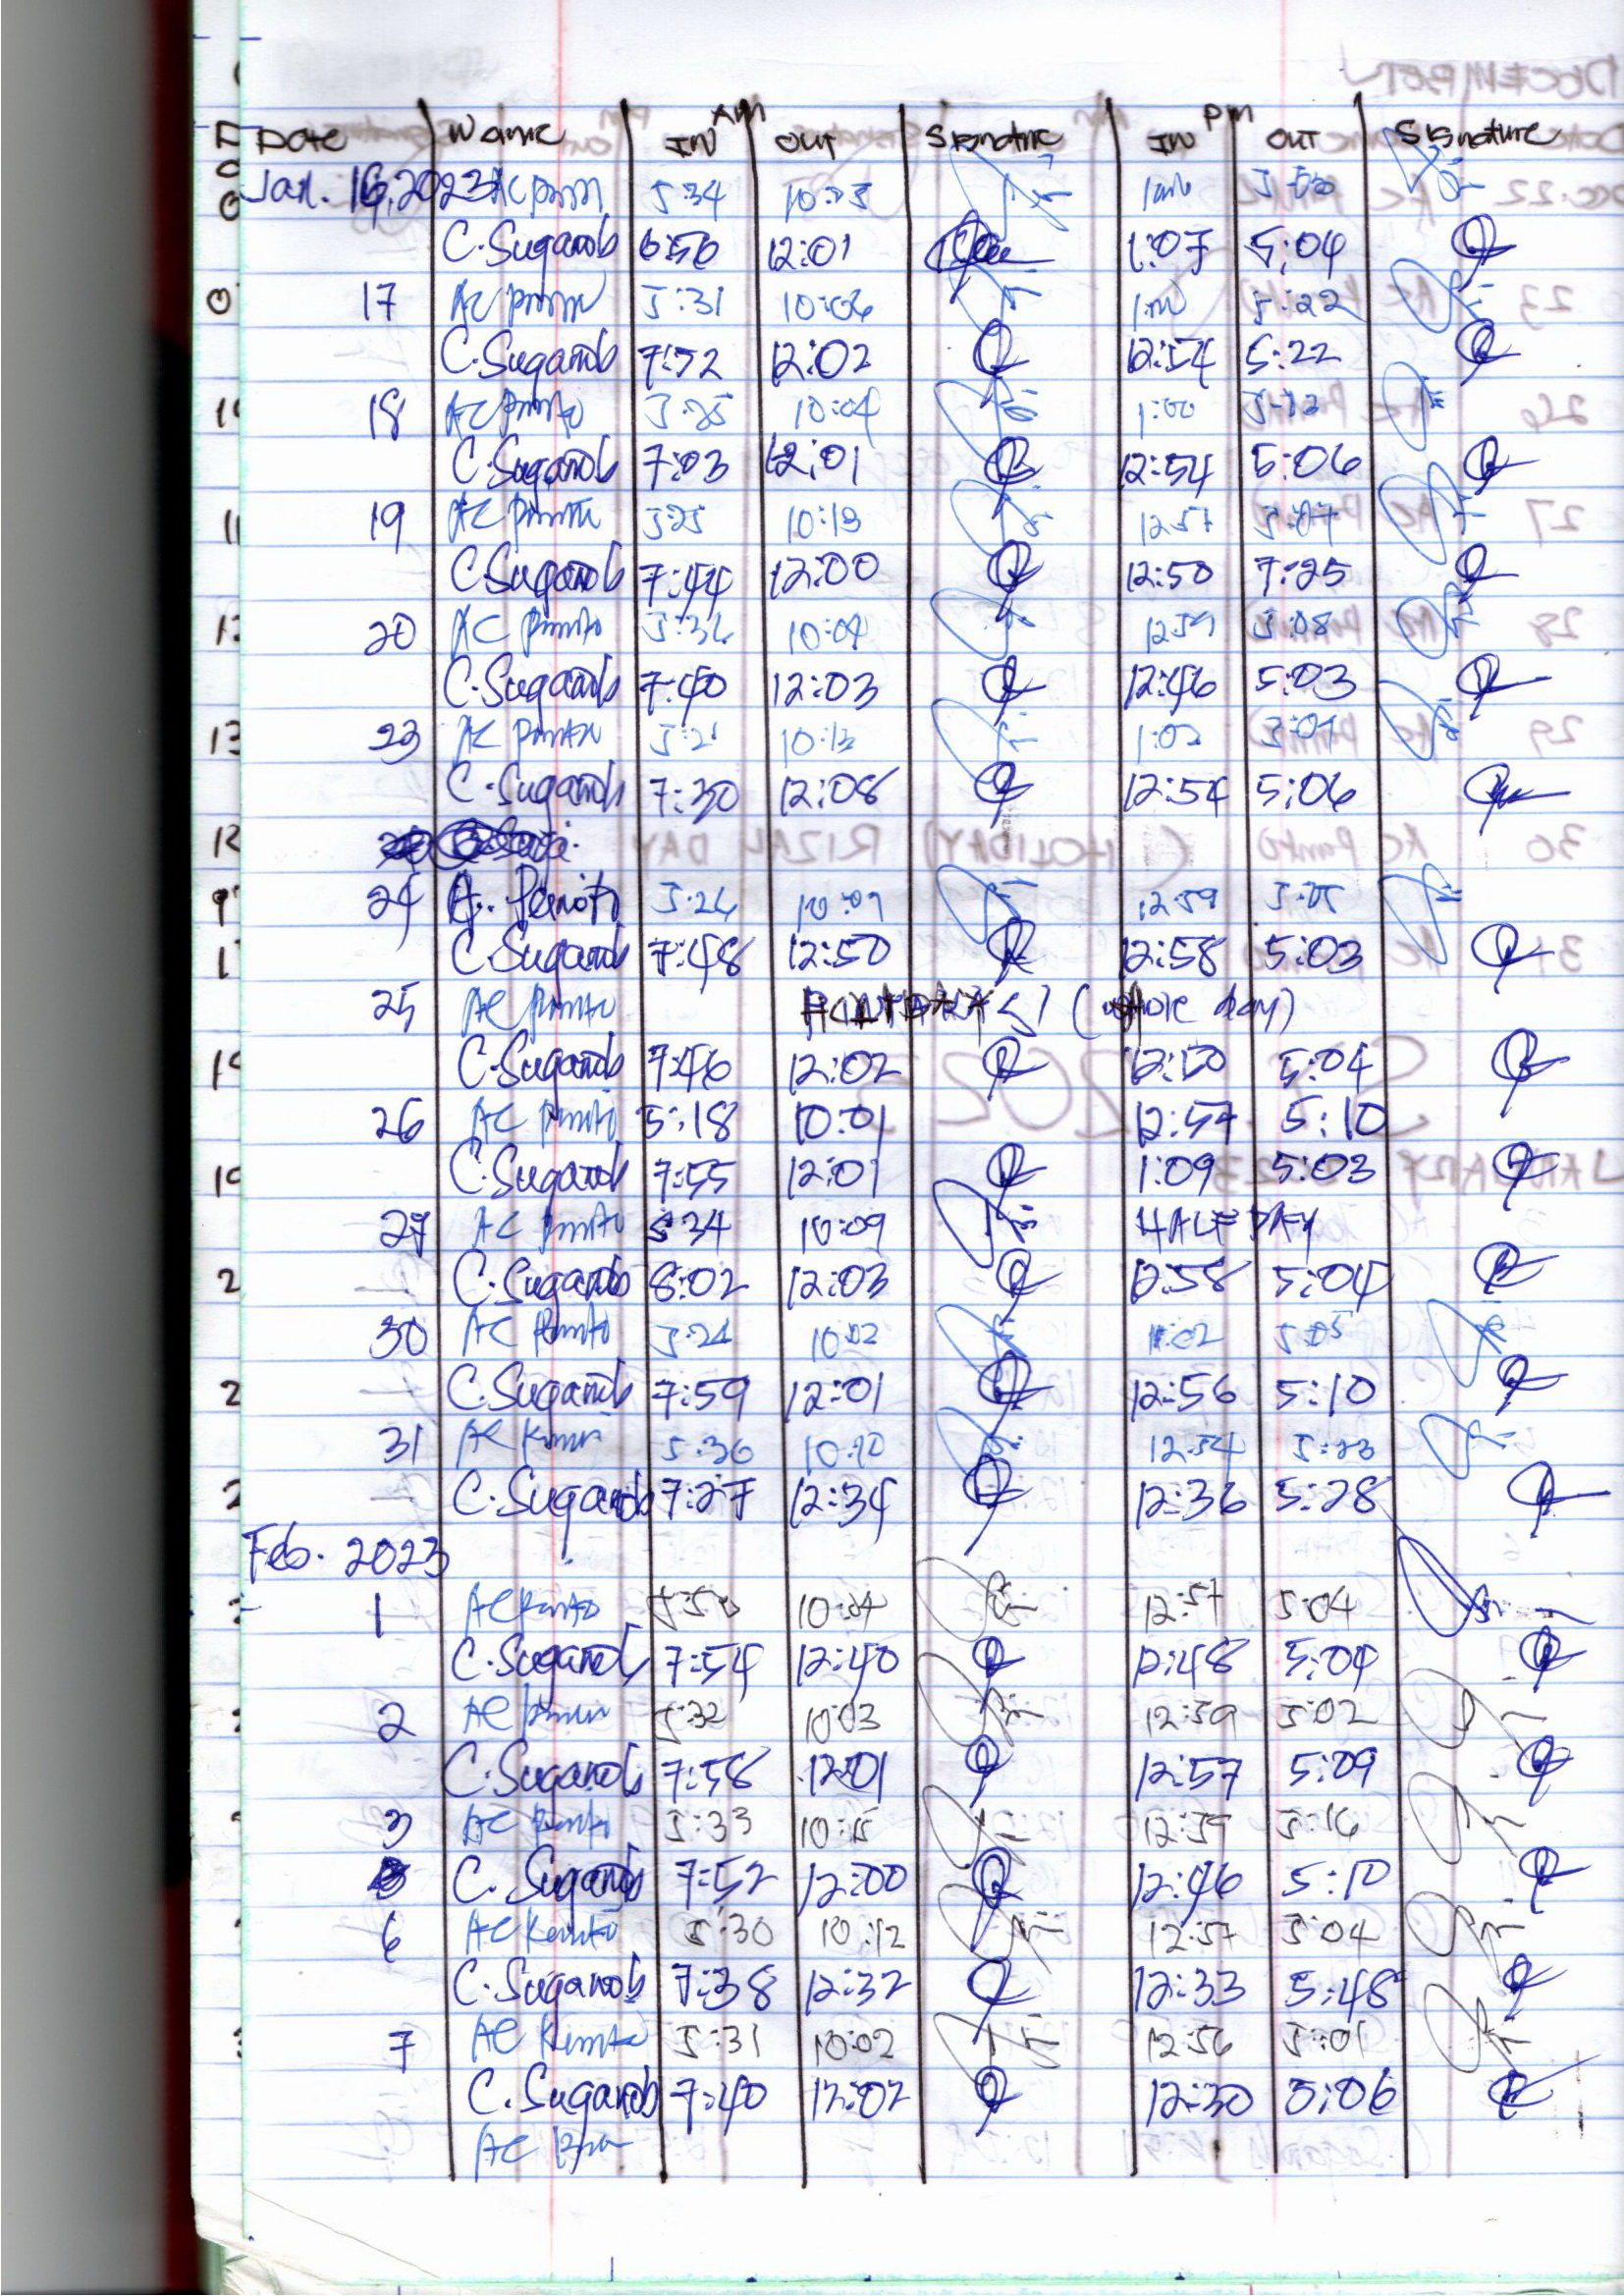 AM PM
Date Name IN OUT Signature IN OUT Signature
Jan. 16, 2023 AC 5:34 10:23
C. Suganob 6:50 12:01 1:07 5:04
17 AC 5:31 10:06 5:22
C. Suganob 7:52 12:02 12:54 5:22
18 AC Punto 5:25 10:04 1:00
C. Suganob 7:03 12:01 12:54 5:06
19 AC 5:25 10:13 12:57 5:07
C. Suganob 7:44 12:00 12:50 7:25
20 AC Punto 5:36 10:04 12:59 5:08
C. Suganob 7:40 12:03 12:46 5:03
23 AC Punto 10:12 1:02 5:07
C. Suganob 7:30 12:08 12:54 5:06
24 5:26 10:09 12:59
C. Suganob 7:48 12:50 12:58 5:03
25 AC Punto (whole day)
C. Suganob 7:46 12:02 12:50 5:04
26 AC Punto 5:18 10:01 12:57 5:10
C. Suganob 7:55 12:01 1:09 5:03
27 AC Punto 5:34 10:09 HALF DAY
C. Suganob 8:02 12:03 12:58 5:04
30 AC Punto 5:24 10:02 1:02 5:05
C. Suganob 7:59 12:01 12:56 5:10
31 AC 5:36 10:10 12:54 5:23
C. Suganob 7:27 12:34 12:36 5:28
Feb. 2023
1 AC Punto 10:04 12:57 5:04
C. Suganob 7:54 12:40 12:48 5:04
2 AC 5:32 10:03 12:59 5:02
C. Suganob 7:58 12:01 12:57 5:09
3 AC Punto 5:33 10:15 12:59 5:16
C. Suganob 7:52 12:00 12:46 5:10
6 AC Punto 5:30 10:12 12:57 5:04
C. Suganob 7:38 12:32 12:33 5:48
7 AC Punto 5:31 10:02 12:56 5:01
C. Suganob 7:40 12:02 12:30 5:06
AC